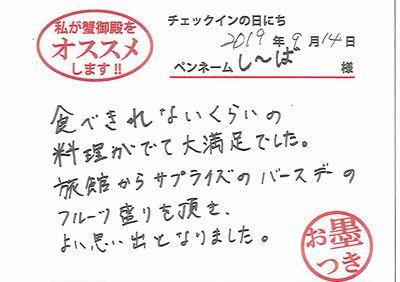 私が蟹御殿を
オススメ
します!!
チェックインの日にち
2019年9月14日
ペンネーム し〜ば 様
食べきれないくらいの
料理がでて大満足でした。
旅館からサプライズのバースデーの
フルーツ盛りを頂き、
よい思い出となりました。
お墨
つき